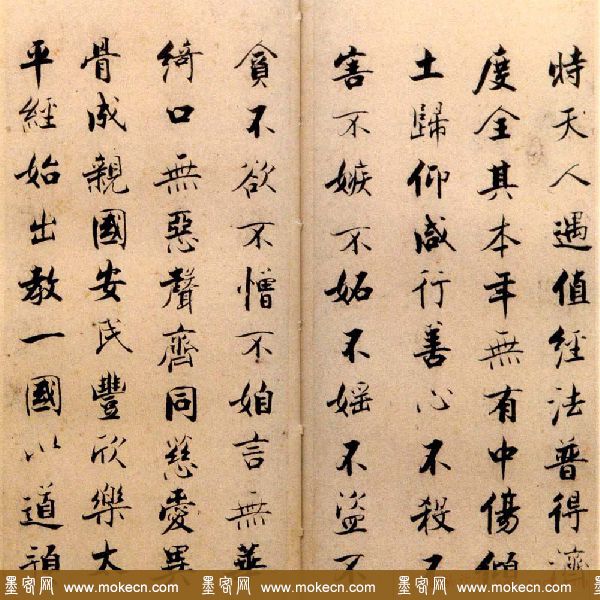 時天人遇值經法普得濟
度全其本年無有中傷傾
土歸仰咸行善心不殺不
害不嫉不妬不婬不盜不
貪不欲不憎不言無華
綺口無惡聲齊同慈愛異
骨成親國安民豐欣樂太
平經始出教一國以道預
墨客网 www.mokecn.com 墨客网 www.mokecn.com 墨客网 www.mokecn.com